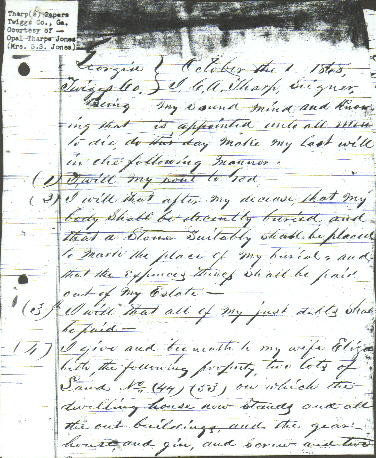 Tharp(e) Papers
Twiggs Co., Ga.
Courtesy of —
Opal Tharpe Jones
(Mrs. S.S. Jones)
Georgia } October the 1, 1863,
Twiggs Co, } I C. A. Tharp, Signer,
Being my Sound mind and Know
ing that is appointed unto all Men
to die, do this day make my last will
in the following manner.
(1) I will my soul to God
(2) I will that after my decease, that my
body shall be decently buried, and
that a Stone Suitably shall be placed
to mark the place of my burial, and
that the expences things shall be paid
out of my Estate —
(3) I will that all of my just debts shall
be paid —
(4) I give and bequeath to my wife Eliza
beth the following property, two lots of
Land No, (44) (53) on which the
dwelling house now Stands and all
the out buildings, and the gear
house, and gin, and Screw and two